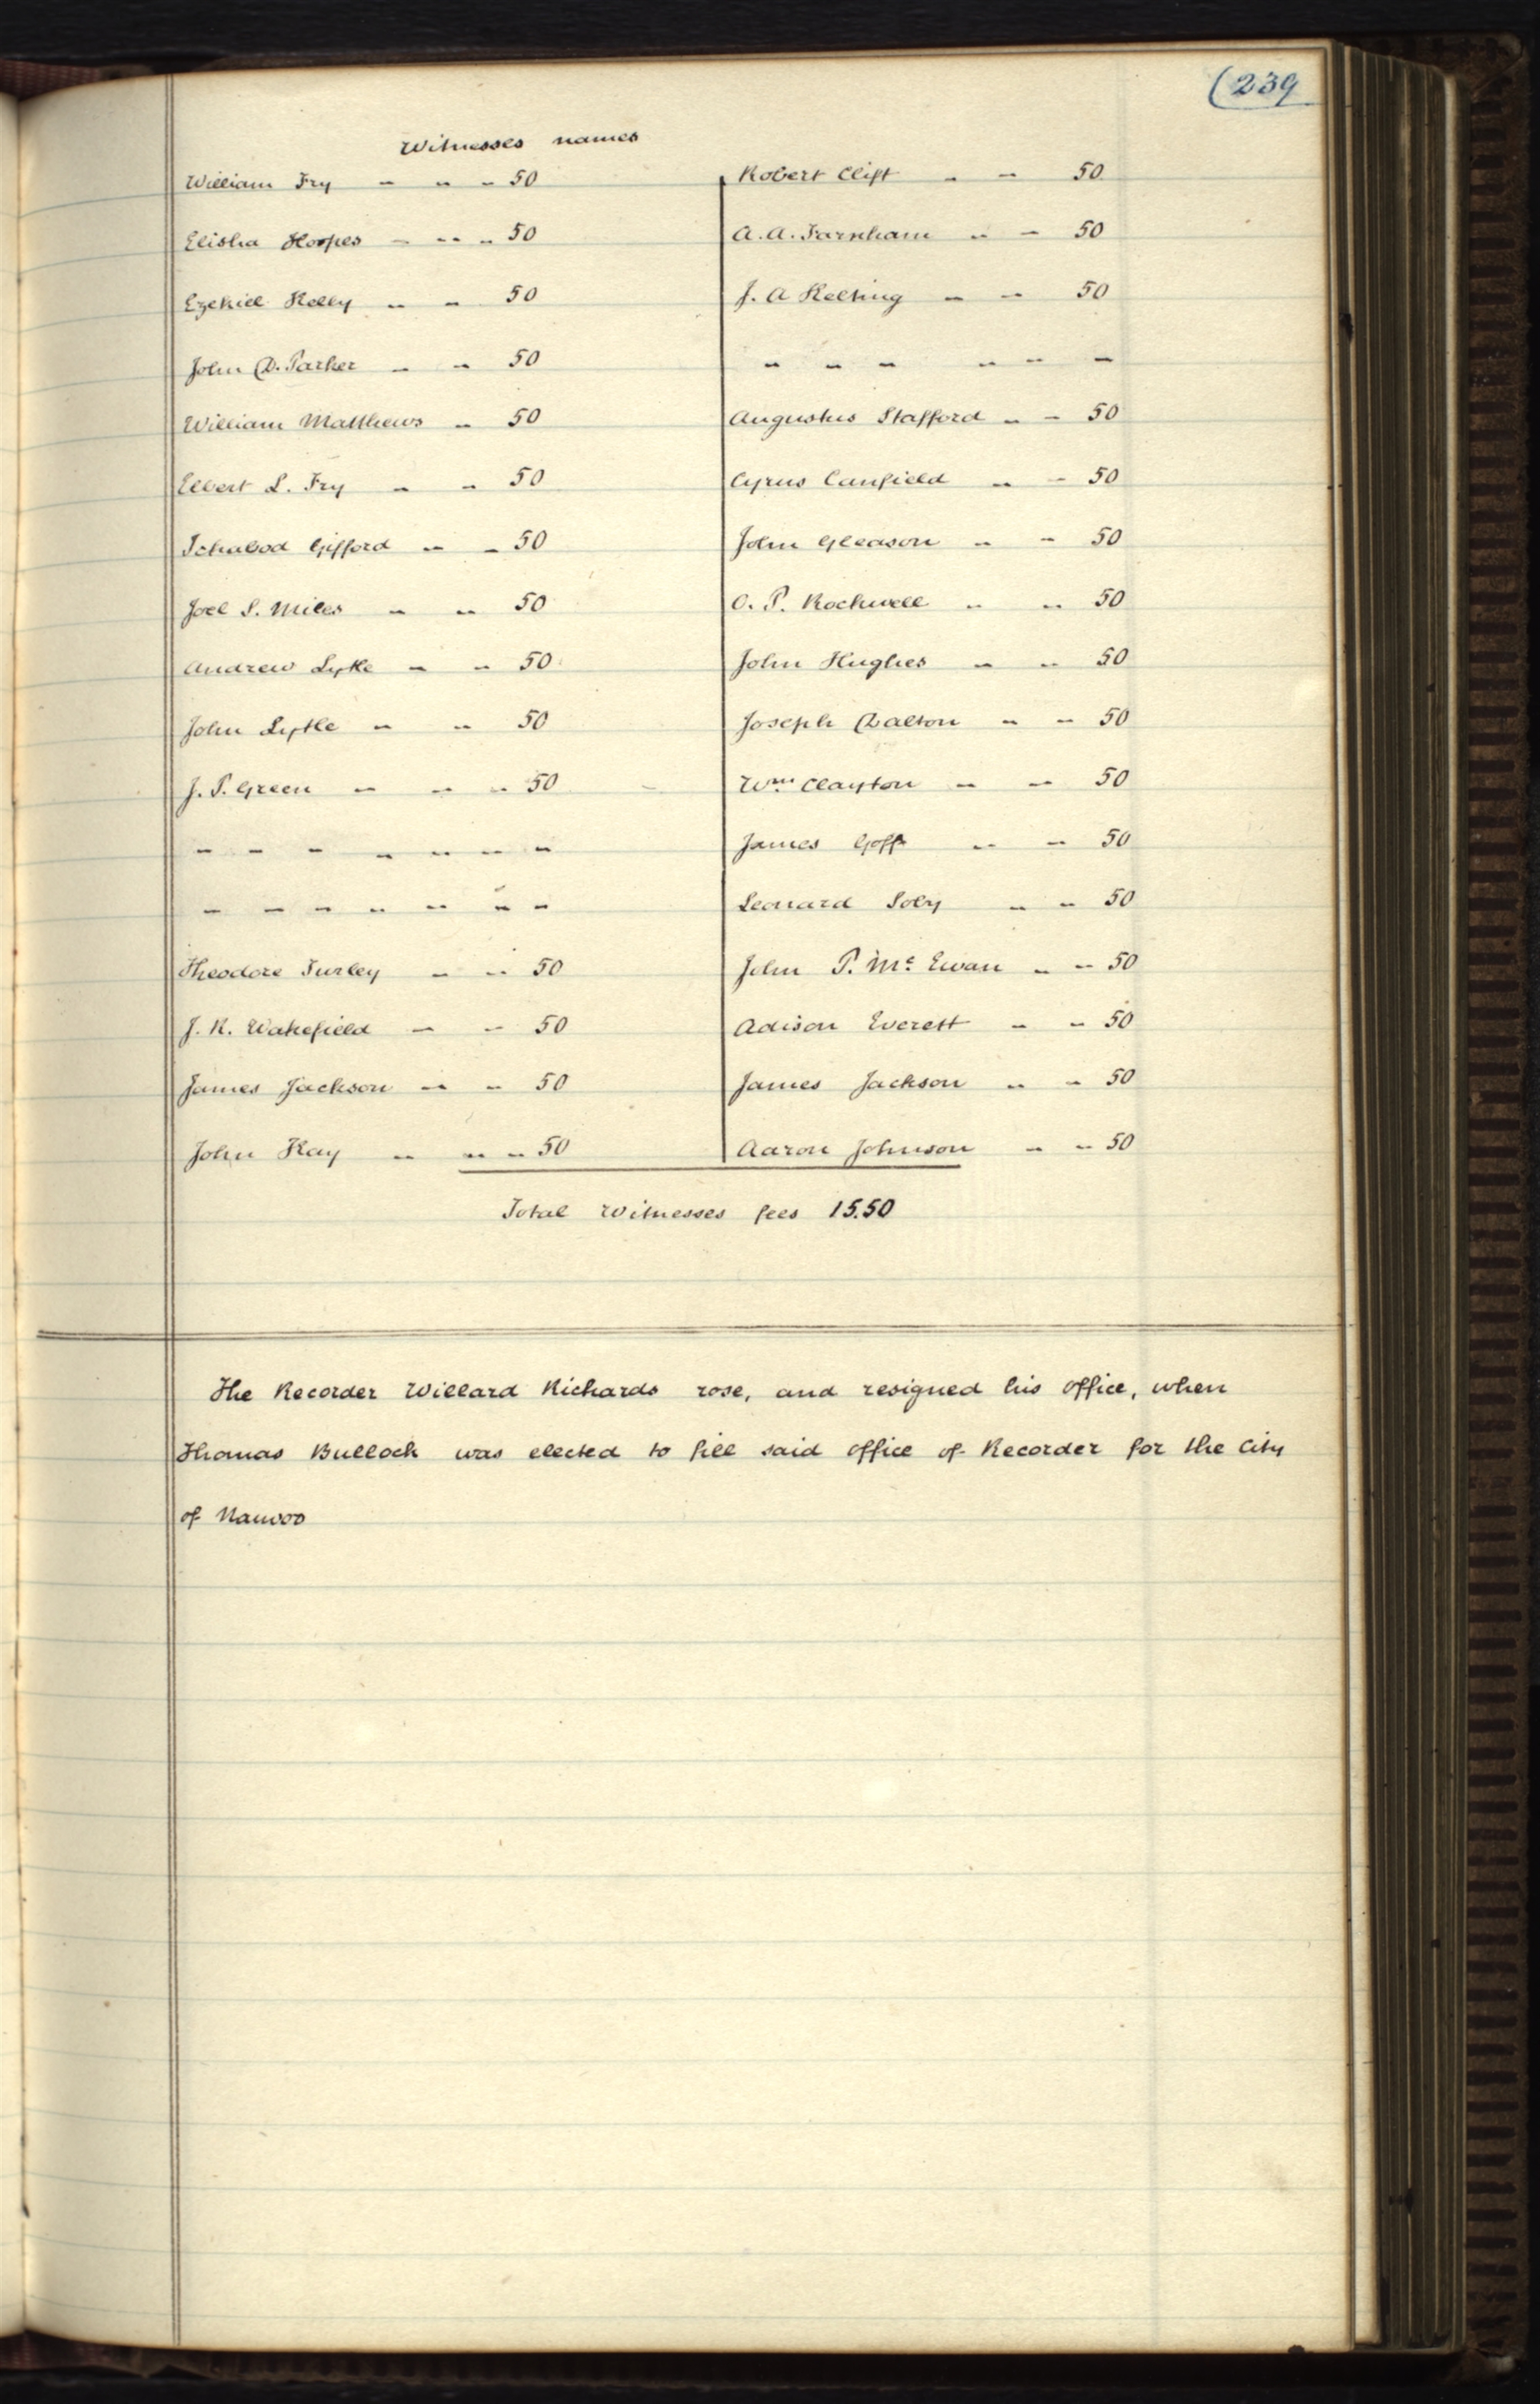 (239
Witnesses names
William Fry - - - 50
Elisha Hoopes - - - 50
Ezekiel Kelly - - 50
John D. Parker - - 50
William Matthews - 50
Elbert L. Fry - - 50
Ichabod Gifford - - 50
Joel S. Miles - - 50
Andrew Lytle - - 50
John Lytle - - 50
J. P. Green - - - 50
- - - - - - -
- - - - - - -
Theodore Turley - - 50
J. R. Wakefield - - 50
James Jackson - - 50
John Kay - - - 50
Robert Clift - - 50
A. A. Farnham - - 50
J. A Kelting - - 50
- - - - - -
Augustus Stafford - - 50
Cyrus Canfield - - 50
John Gleason - - 50
O. P. Rockwell - - 50
John Hughes - - 50
Joseph Dalton - - 50
Wm Clayton - - 50
James Goff - - 50
Leonard Soby - - 50
John P. Mc Ewan - - 50
Adison Everett - - 50
James Jackson - - 50
Aaron Johnson - - 50
Total Witnesses fees 15.50
The Recorder Willard Richards rose, and resigned his office, when
Thomas Bullock was elected to fill said office of Recorder for the City
of Nauvoo